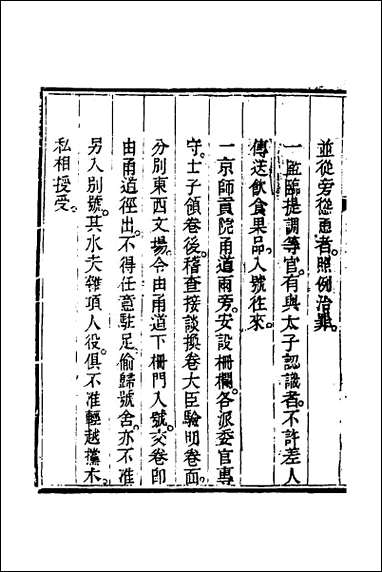 並從旁慫恿者。照例治罪。
一監臨提調等官。有與太子認識者。不許差人
傳送飲食果品。入號往來。
一京師貢院甬道兩旁。安設柵欄。各派委官專
守。士子領卷後。稽查接談換卷大臣驗明卷面。
分別東西文場。令由甬道下柵門入號。交卷卽
由甬道徑出。不得任意駐足偷歸號舍。亦不准
另入別號。其水夫雜項人役。俱不准輕越攩木。
私相授受。